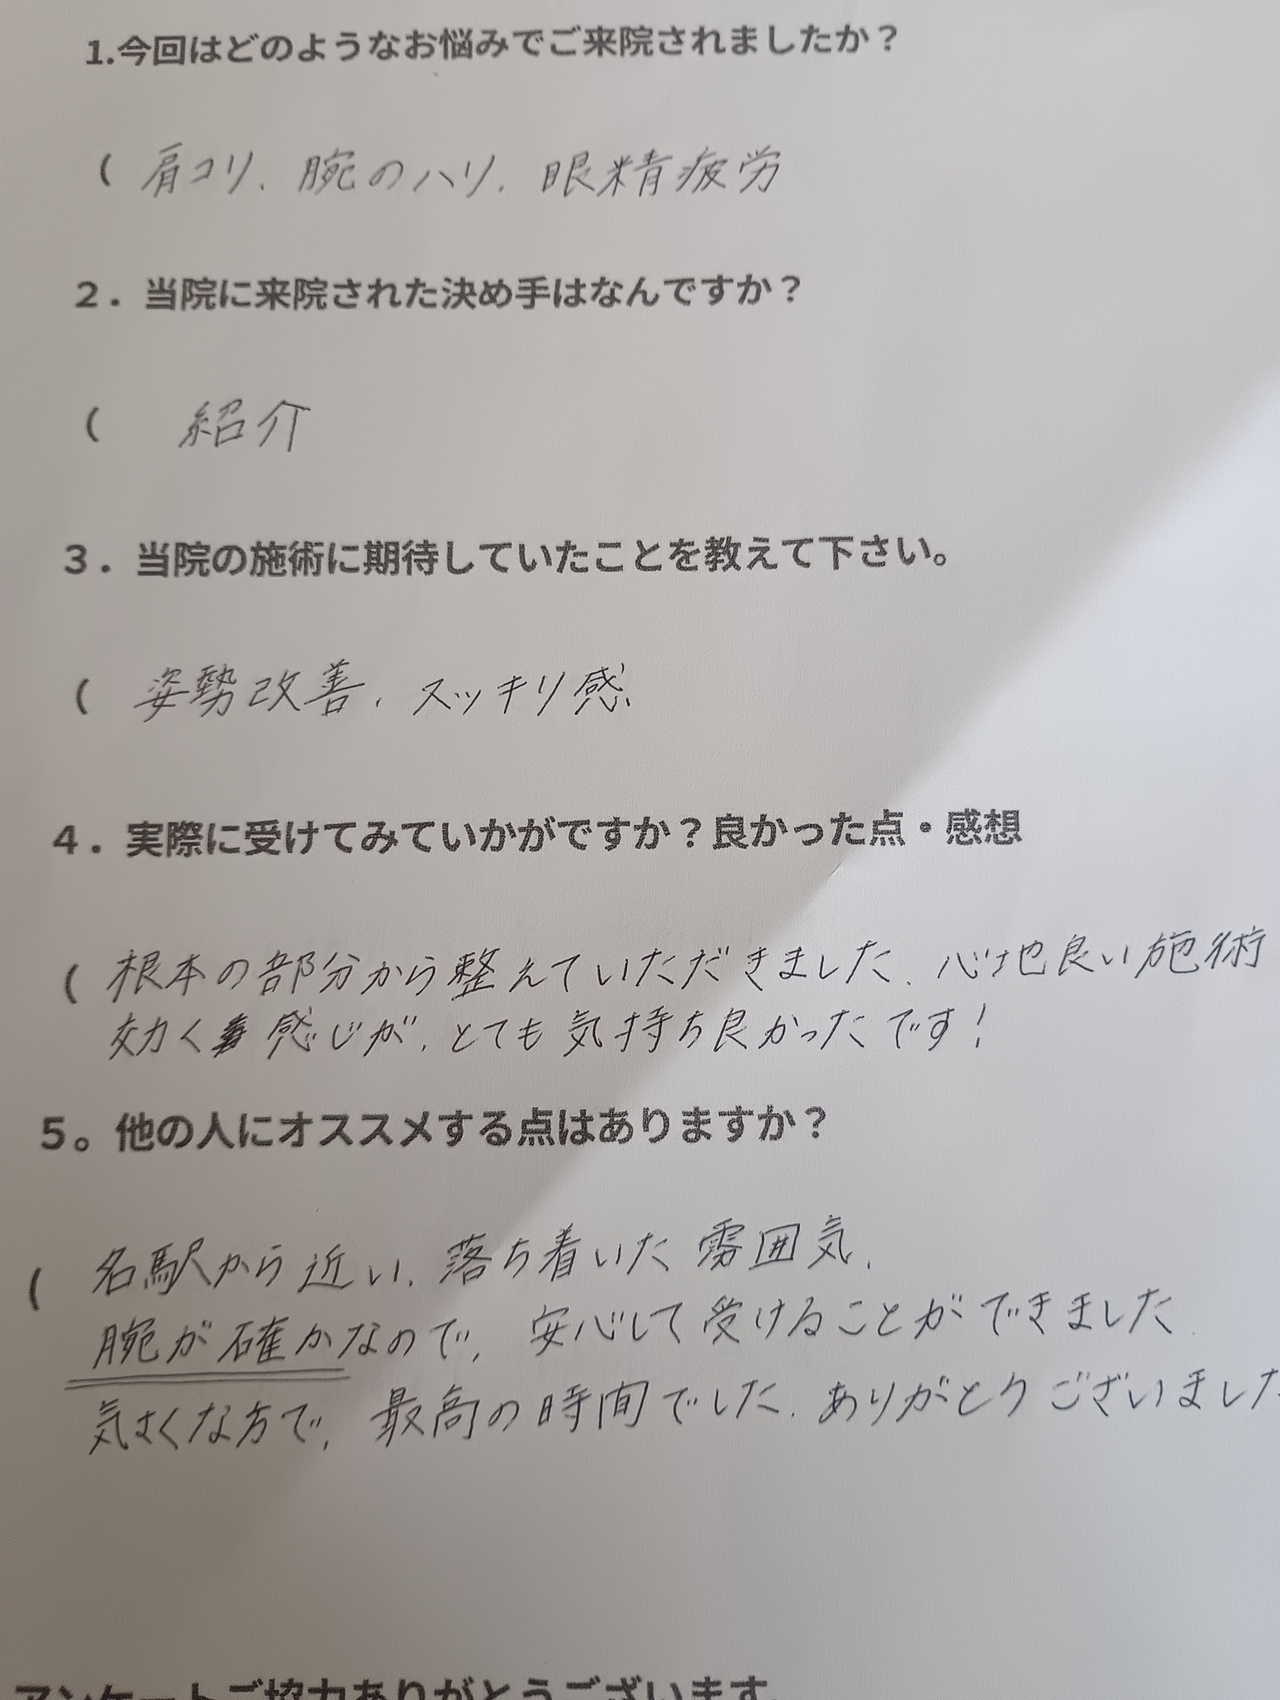 1.今回はどのようなお悩みでご来院されましたか？
( 肩コリ、腕のハリ、眼精疲労
２．当院に来院された決め手はなんですか？
( 紹介
３．当院の施術に期待していたことを教えて下さい。
( 姿勢改善、スッキリ感
４．実際に受けてみていかがですか？良かった点・感想
( 根本の部分から整えていただきました、心地良い施術
効く感じが、とても気持ち良かったです！
５。他の人にオススメする点はありますか？
( 名駅から近い、落ち着いた雰囲気、
腕が確かなので、安心して受けることができました
気さくな方で、最高の時間でした、ありがとうございました
アンケートご協力ありがとうございます。